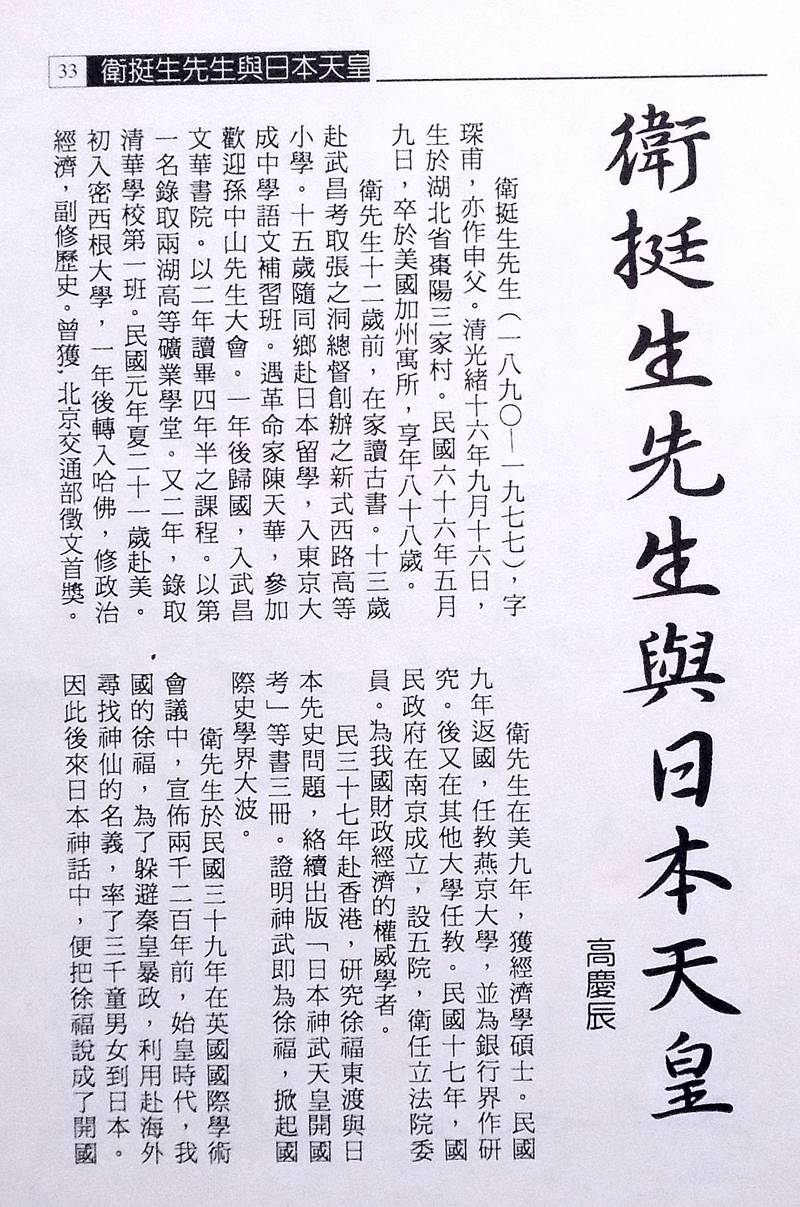 33 衛挺生先生與日本天皇
衛挺生先生與日本天皇
高慶辰
衛挺生先生（一八九〇—一九七七），字
琛甫，亦作申父。清光緒十六年九月十六日，
生於湖北省棗陽三家村。民國六十六年五月
九日，卒於美國加州寓所，享年八十八歲。
衛先生十二歲前，在家讀古書。十三歲
赴武昌考取張之洞總督創辦之新式西路高等
小學。十五歲隨同鄉赴日本留學，入東京大
成中學語文補習班。遇革命家陳天華，參加
歡迎孫中山先生大會。一年後歸國，入武昌
文華書院。以二年讀畢四年半之課程。以第
一名錄取兩湖高等礦業學堂。又二年，錄取
清華學校第一班。民國元年夏二十一歲赴美。
初入密西根大學，一年後轉入哈佛，修政治
經濟，副修歷史。曾獲北京交通部徵文首獎。
衛先生在美九年，獲經濟學碩士。民國
九年返國，任教燕京大學，並為銀行界作研
究。後又在其他大學任教。民國十七年，國
民政府在南京成立，設五院，衛任立法院委
員。為我國財政經濟的權威學者。
民三十七年赴香港，研究徐福東渡與日
本先史問題，絡續出版「日本神武天皇開國
考」等書三冊。證明神武即為徐福，掀起國
際史學界大波。
衛先生於民國三十九年在英國國際學術
會議中，宣佈兩千二百年前，始皇時代，我
國的徐福，為了躲避秦皇暴政，利用赴海外
尋找神仙的名義，率了三千童男女到日本。
因此後來日本神話中，便把徐福說成了開國